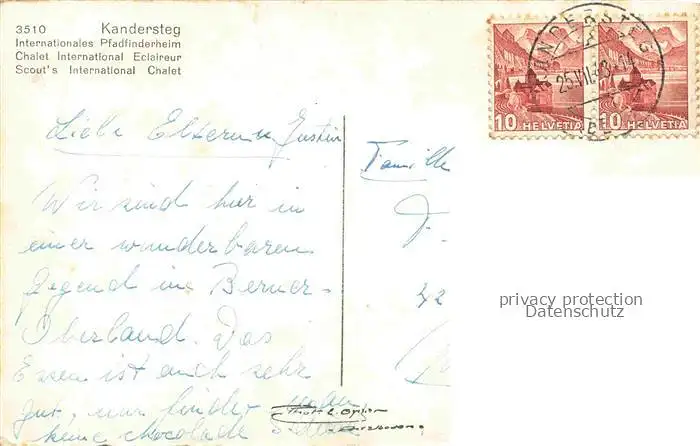 3510 Kandersteg
Internationales Pfadfinderheim
Chalet International Eclaireur
Scout's International Chalet
10 HELVETIA 10 HELVETIA
KANDERSTEG
25.VII.
Liebe Eltern u.
Wir sind hier in
einer wunderbaren
Gegend im Berner-
Oberland. Das
Essen ist auch sehr
gut, nur leider
keine chocolade
Familie
J.
42
privacy protection
Datenschutz